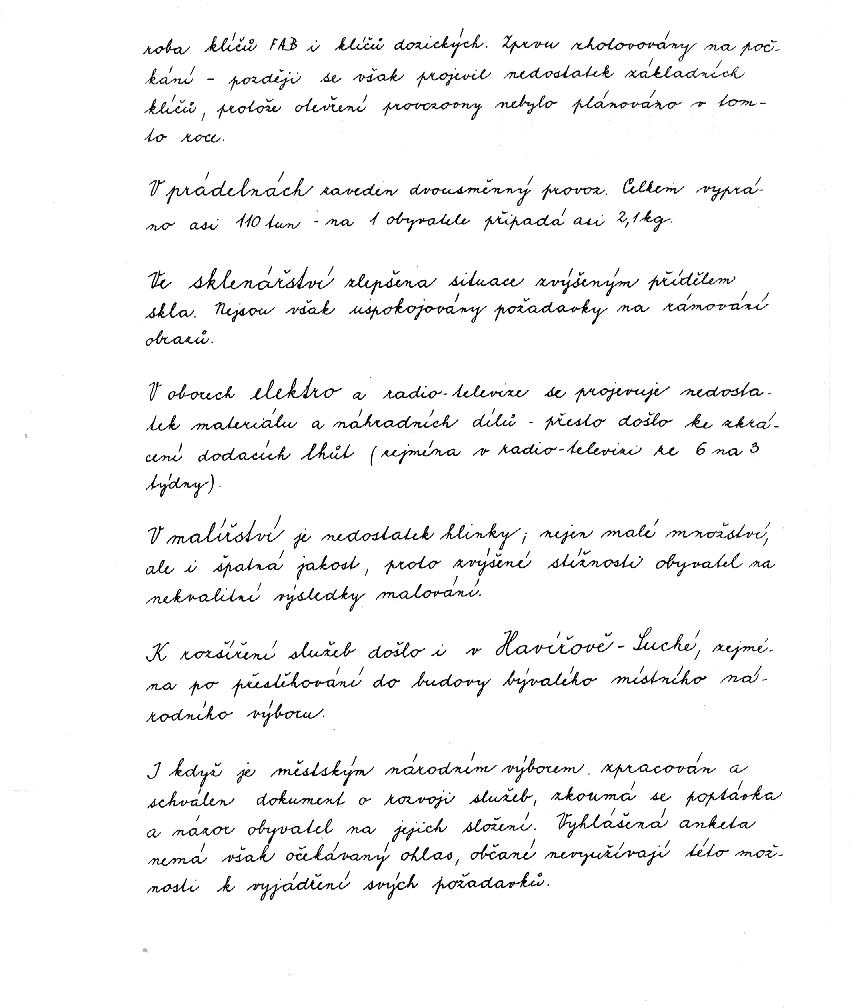 roba klíčů FAB i klíčů dozických. Zprvu zhotovovány na poč-
kání - později se však projevil nedostatek základních
klíčů, protože otevření provozovny nebylo plánováno v tom-
to roce.
V prádelnách zaveden dvousměnný provoz. Celkem vyprá-
no asi 110 tun - na 1 obyvatele připadá asi 2,1 kg.
Ve sklenářství zlepšena situace zvýšeným přídělem
skla. Nejsou však uspokojovány požadavky na rámování
obrazů.
V oborech elektro a radio-televize se projevuje nedosta-
tek materiálu a náhradních dílů - přesto došlo ke zkrá-
cení dodacích lhůt (zejména v radio-televizi ze 6 na 3
týdny).
V malířství je nedostatek hlinky; nejen malé množství,
ale i špatná jakost, proto zvýšené stížnosti obyvatel na
nekvalitní výsledky malování.
K rozšíření služeb došlo i v Havířově - Suché, zejmé-
na po přestěhování do budovy bývalého místního ná-
rodního výboru.
I když je městským národním výborem zpracován a
schválen dokument o rozvoji služeb, zkoumá se poptávka
a názor obyvatel na jejich složení. Vyhlášená anketa
nemá však očekávaný ohlas, občané nevyužívají této mož-
nosti k vyjádření svých požadavků.